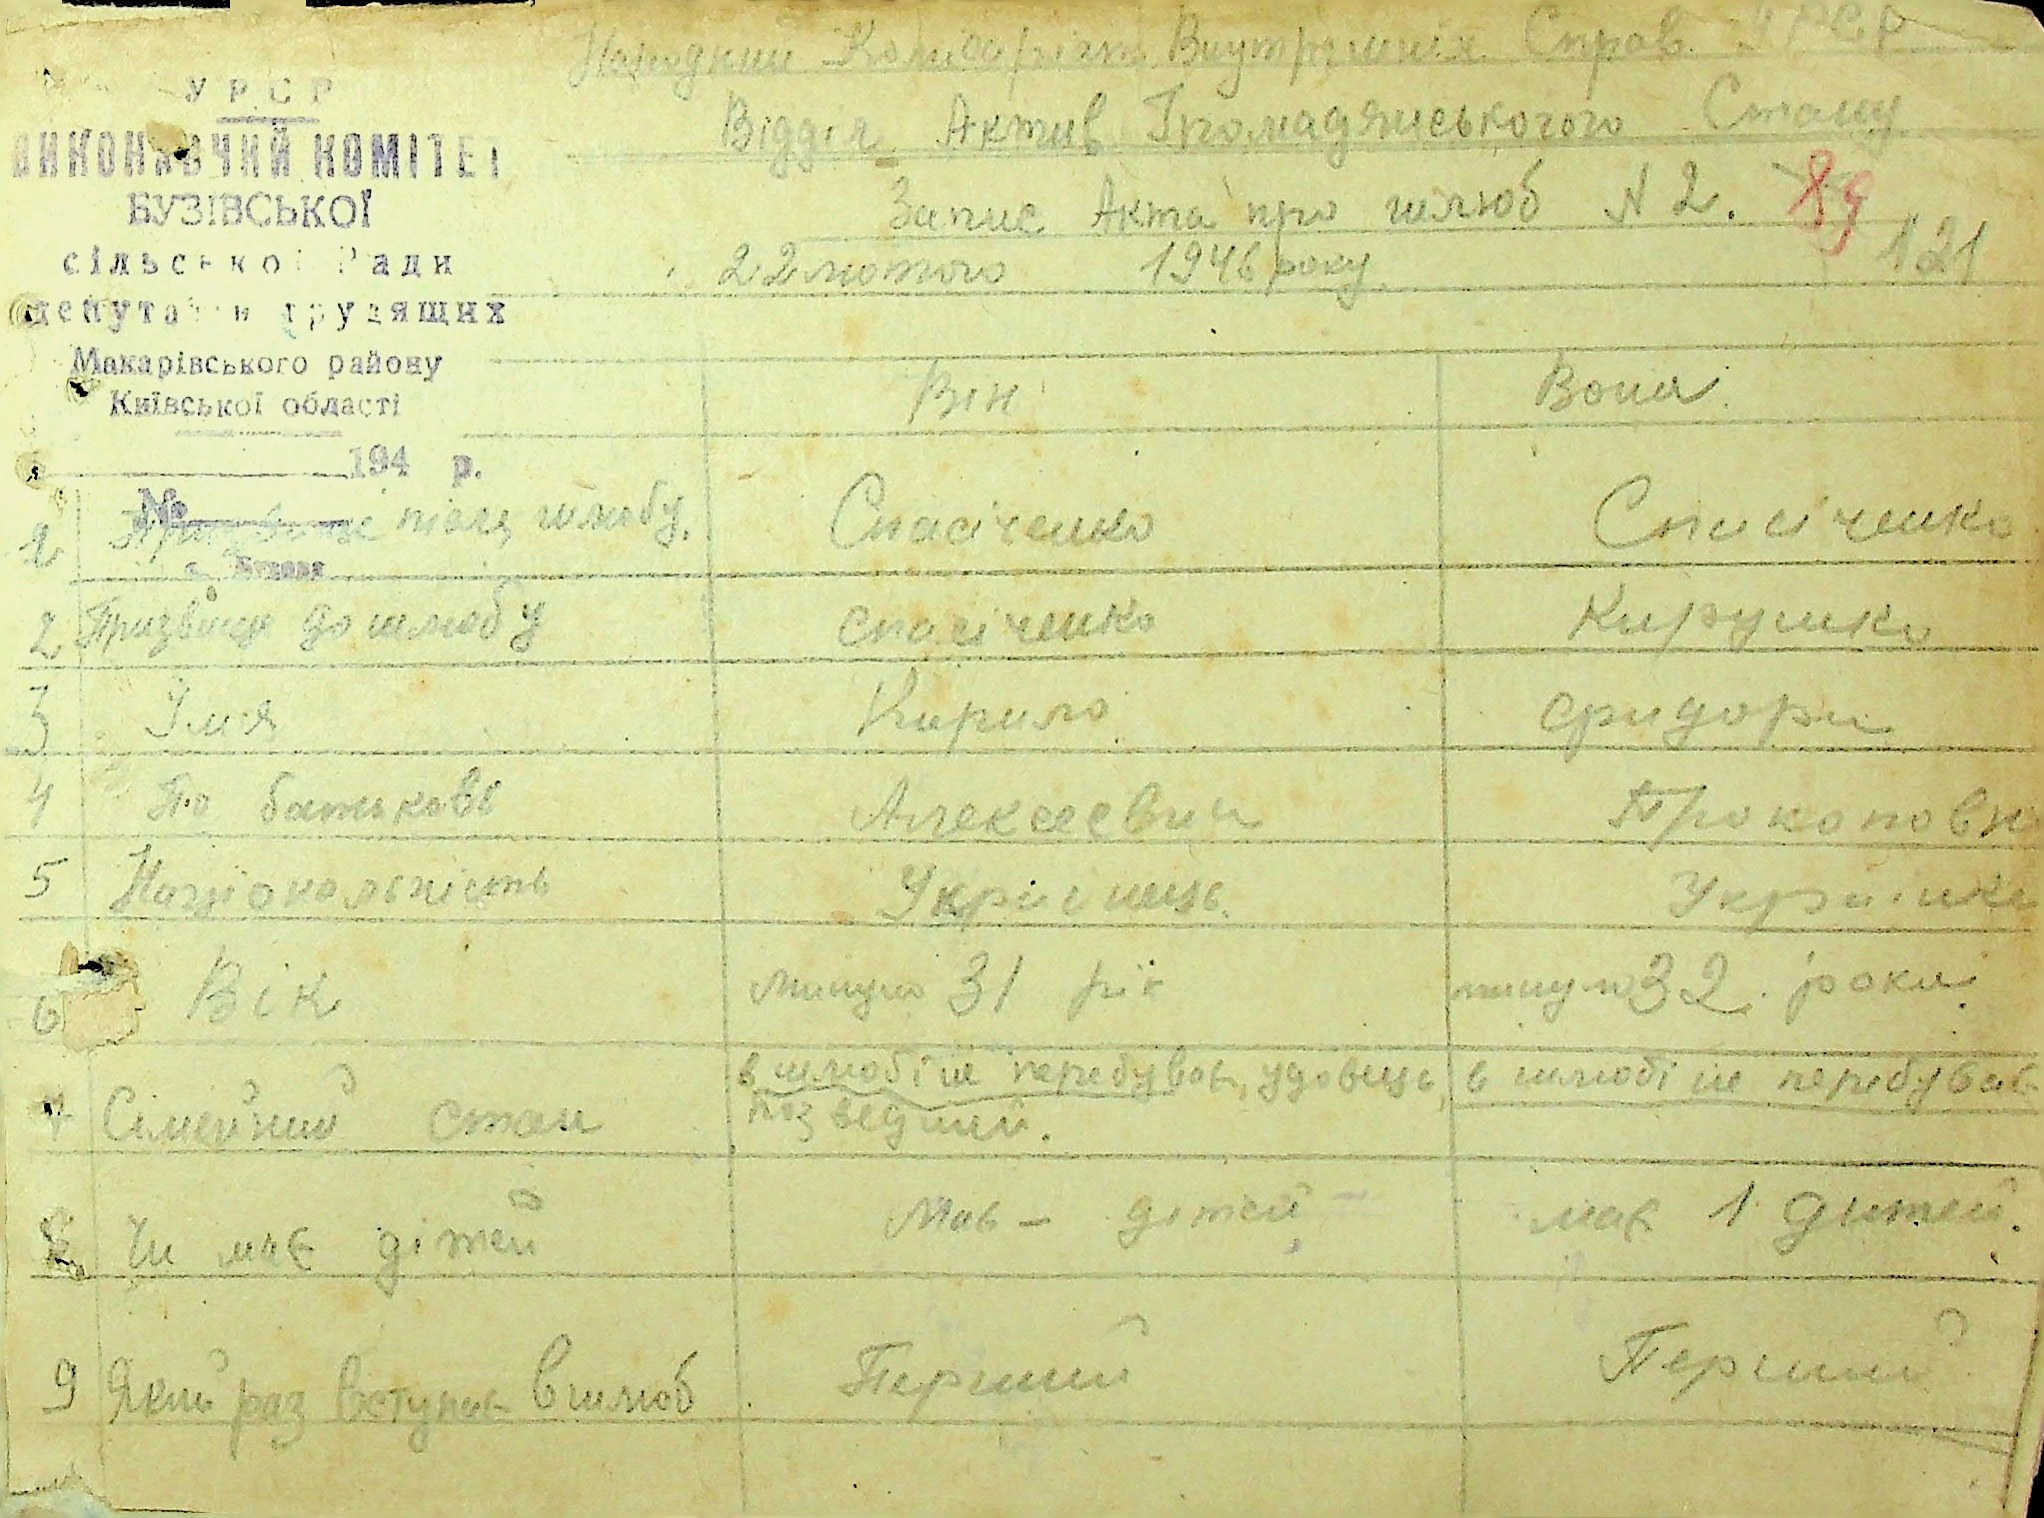 Народний Комісаріят Внутрішніх Справ УРСР
Відділ Актив Громадянськогого Стану
Запис Акта про шлюб N 2. 89
22 лютого 1946 року 121
УРСР
ВИКОНАВЧИЙ КОМІТЕТ
БУЗІВСЬКОЇ
сільської Ради
депутатів трудящих
Макарівського району
Київської області
194 р.
№
с. Бузова
Він Вона
1 після шлюбу. Спасіченко Спасіченко
2 Призвище до шлюбу спасіченко Кирушко
3 Імя Кирило
4 По батькові Алексеевич Прокоповн
5 Національність Українець Українка
6 Вік минуло 31 рік минуло 32 роки
7 Сімейний стан в шлюбі не перебував, удовець, розведший. в шлюбі не перебував
8 Чи має дітей Мав – дітей має 1 дитей.
9 Який раз вступав в шлюб Перший Перший